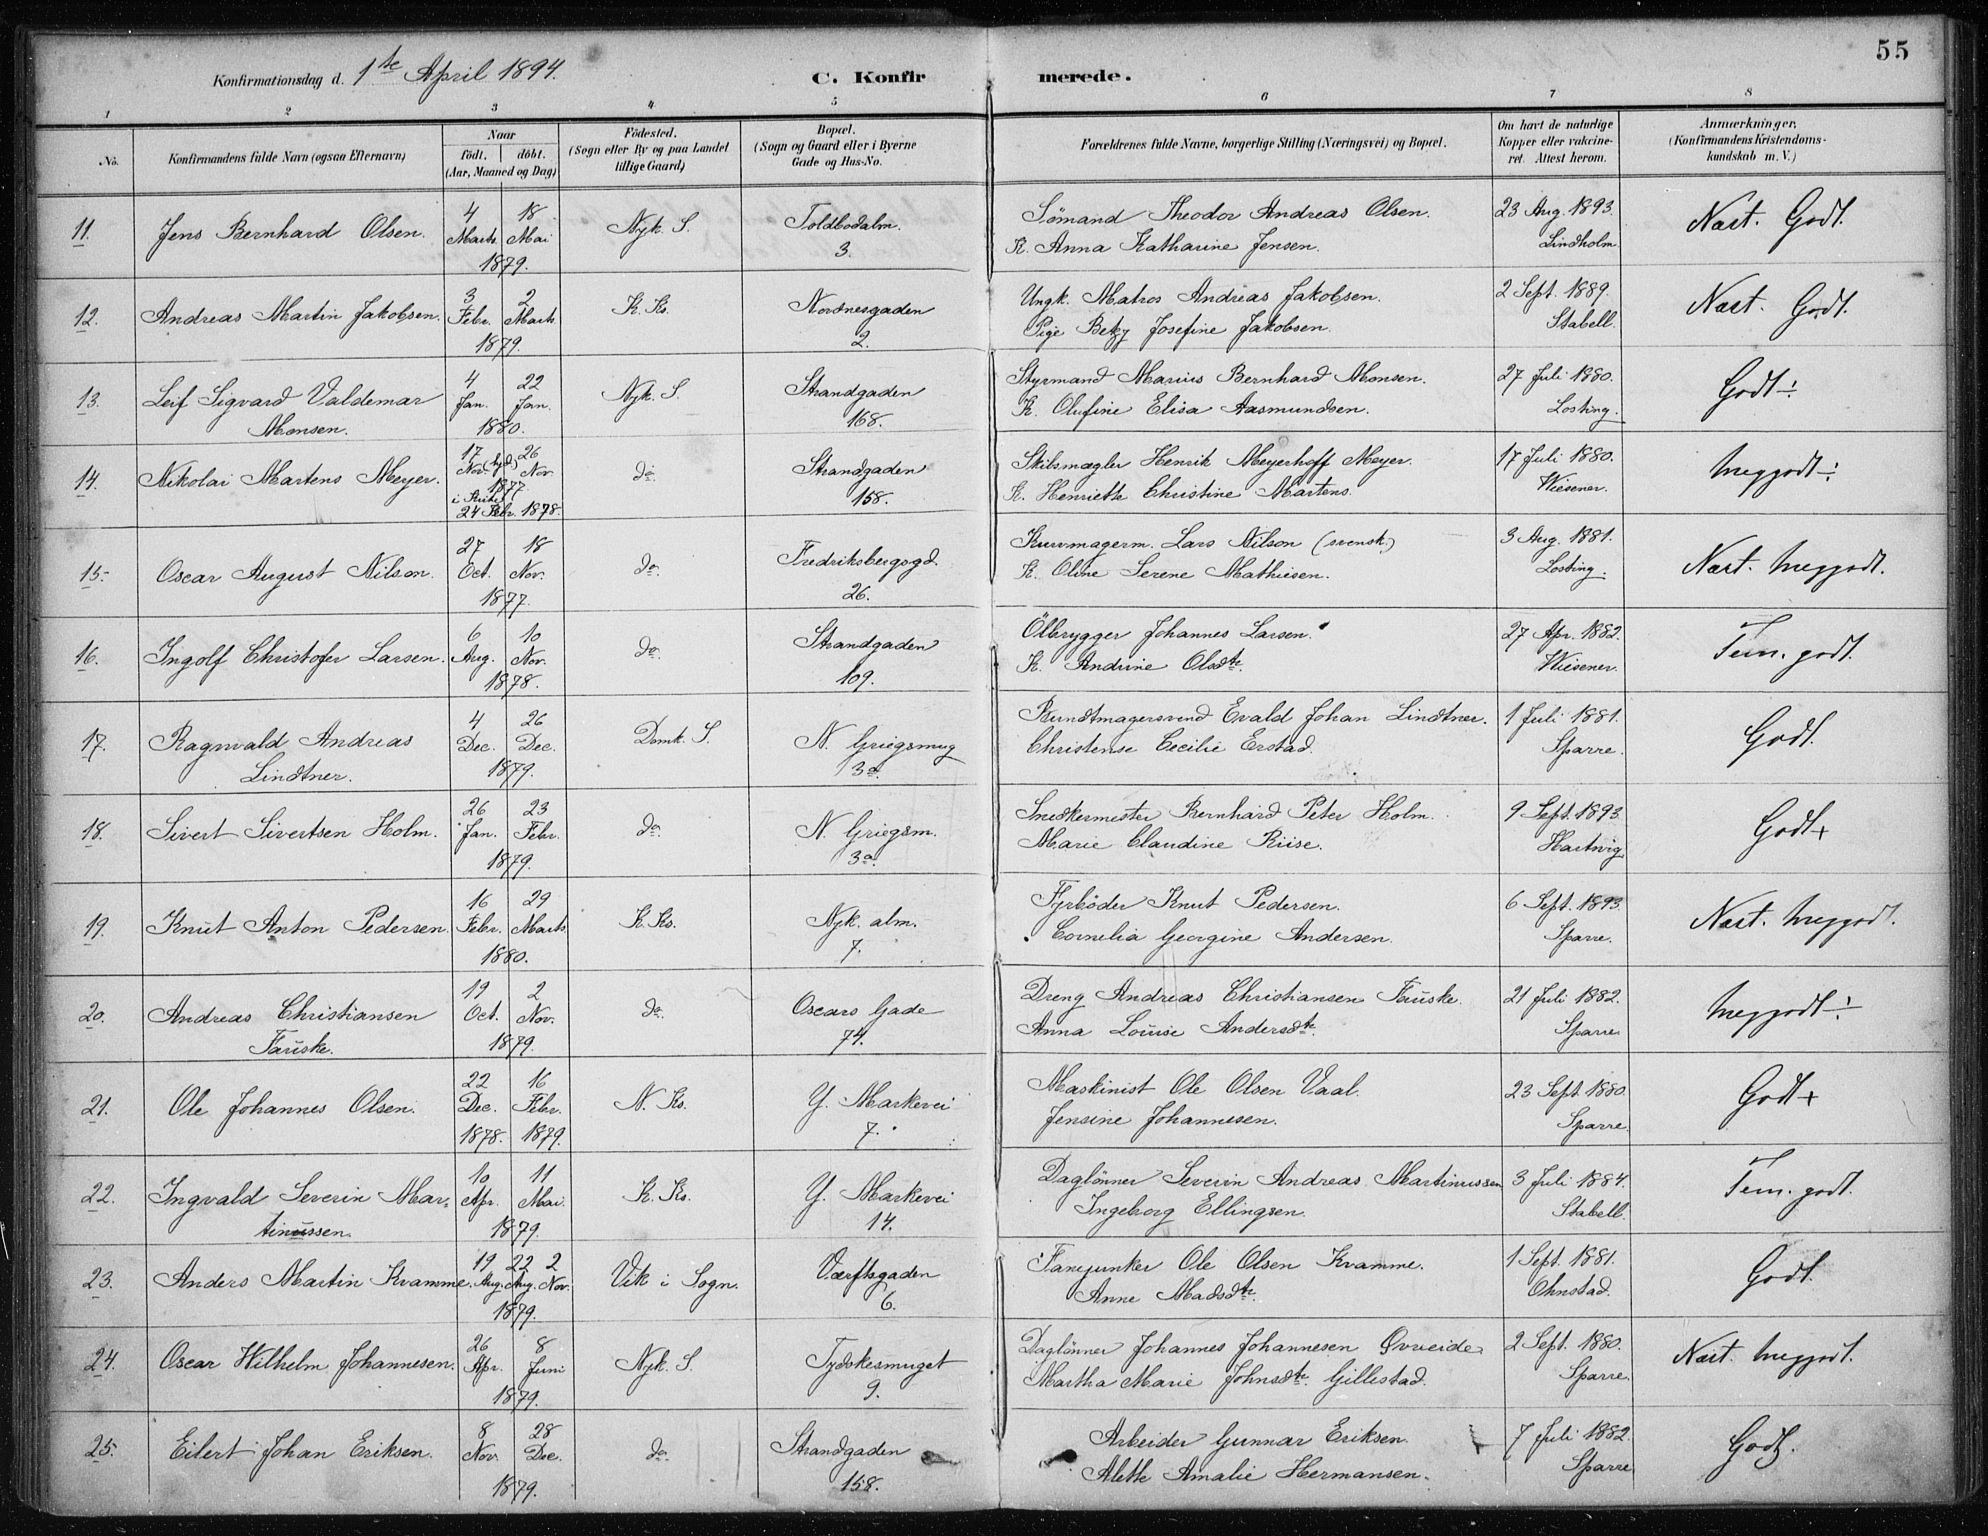 55
Konfirmationsdag d. 1ste April 1894.
C. Konfirmerede.
1 2 3 4 5 6 7 8
No.
Konfirmandens fulde Navn (ogsaa Efternavn)
Naar
födt. | döbt.
(Aar, Maaned og Dag)
Födested.
(Sogn eller By og paa Landet
tillige Gaard)
Bopæl.
(Sogn og Gaard eller i Byerne
Gade og Hus-No.
Forældrenes fulde Navne, borgerlige Stilling (Næringsvei) og Bopæl.
Om havt de naturlige
Kopper eller vakcine-
ret. Attest herom.
Anmærkninger,
(Konfirmandens Kristendoms-
kundskab m. V.)
11. Jens Bernhard Olsen. 4 Marts 18 Mai 1879. Nyk. S. Toldbodalm. 3. Sömand Theodor Andreas Olsen. 23 Aug. 1893. Næst. Godt.
K. Anna Katharine Jensen. Lindholm
12. Andreas Martin Jakobsen. 3 Febr. 2 Marts. 1879. K. Ks. Nordnesgaden 2. Ungk. Matros Andreas Jakobsen. 2 Sept. 1889. Næst. Godt.
Pige Betzy Josefine Jakobsen. Stabell.
13. Leif Sigvard Valdemar 4 Jan. 22 Jan. 1880. Nyk. S. Strandgaden 168. Styrmand Marius Bernhard Monsen. 27 Juli 1880. Godt ÷
Monsen. K. Olufine Elisa Aasmundsen. Losting.
14. Nikolai Martens Meyer. 17 Nov. 26 Nov. 1877. 24 Febr. 1878. do. Strandgaden 158. Skibsmægler Henrik Meyerhoff Meyer. 17 Juli 1880. Meggodt ÷
K. Henriette Christine Martens. Wiesener.
15. Oscar August Nilson. 27 Oct. 18 Nov. 1877. do. Fredriksbergsgd. 26. Kurvmagerm. Lars Nilson (svensk.) 3 Aug. 1881. Næst. Meggodt.
K. Oline Serene Mathiesen. Losting.
16. Ingolf Christofer Larsen. 6 Aug. 10 Nov. 1878. do. Strandgaden 109. Ölbrygger Johannes Larsen. 27 Apr. 1882. Tem. godt.
K. Andrine Olsdtr. Wiesener.
17. Ragnvald Andreas 4 Dec. 26 Dec. 1879. Domk. S. N. Griegsmug 3a. Bundtmagersvend Evald Johan Lindtner. 1 Juli 1881. Godt.
Lindtner. Christense Cecilie Erstad. Sparre.
18. Sivert Sivertsen Holm. 26 Jan. 23 Febr. 1879. do. N. Griegsm. 3a. Snedkermester Bernhard Peter Holm. 9 Sept. 1893. Godt +
Marie Claudine Riise. Hartvig
19. Knut Anton Pedersen. 16 Febr. 29 Marts. 1880. K. Ks. Nyk. alm. 7. Fyrböder Knut Pedersen. 6 Sept. 1893. Næst. Meggodt.
Cornelia Georgine Andersen. Sparre.
20. Andreas Christiansen 19 Oct. 2 Nov. 1879. do. Oscars Gade 74. Dreng Andreas Christiansen Fauske. 21 Juli 1882. Meggodt ÷
Fauske. Anna Louise Andersdtr. Sparre
21. Ole Johannes Olsen. 22 Dec. 1878. 16 Febr. 1879. N. Ks. Y. Markevei 7. Maskinist Ole Olsen Vaal. 23 Sept. 1880. Godt +
Jensine Johannesen. Sparre.
22. Ingvald Severin Mar- 10 Apr. 11 Mai. 1879. K. Ks. Y. Markevei 14. Daglönner Severin Andreas Martinussen 3 Juli 1884. Tem. godt.
tinussen. Ingeborg Ellingsen. Stabell.
23. Anders Martin Kvamme. 19 Aug. 22 Aug. 2 Nov. 1879. Vik i Sogn. Værftsgaden 6. Fanejunker Ole Olsen Kvamme. 1 Sept. 1881. Godt.
Anne Madsdtr. Ohnstad.
24. Oscar Wilhelm Johannesen. 26 Apr. 8 Juni 1879. Nyk. S. Tydskesmuget 9. Daglönner Johannes Johannesen Övreide 2 Sept. 1880. Næst. Meggodt.
Martha Marie Johnsdtr. Gillestad. Sparre.
25. Eilert Johan Eriksen. 8 Nov. 28 Dec. 1879. do. Strandgaden 158. Arbeider Gunnar Eriksen. 7 Juli 1882. Godt.
Alette Amalie Hermansen. Sparre